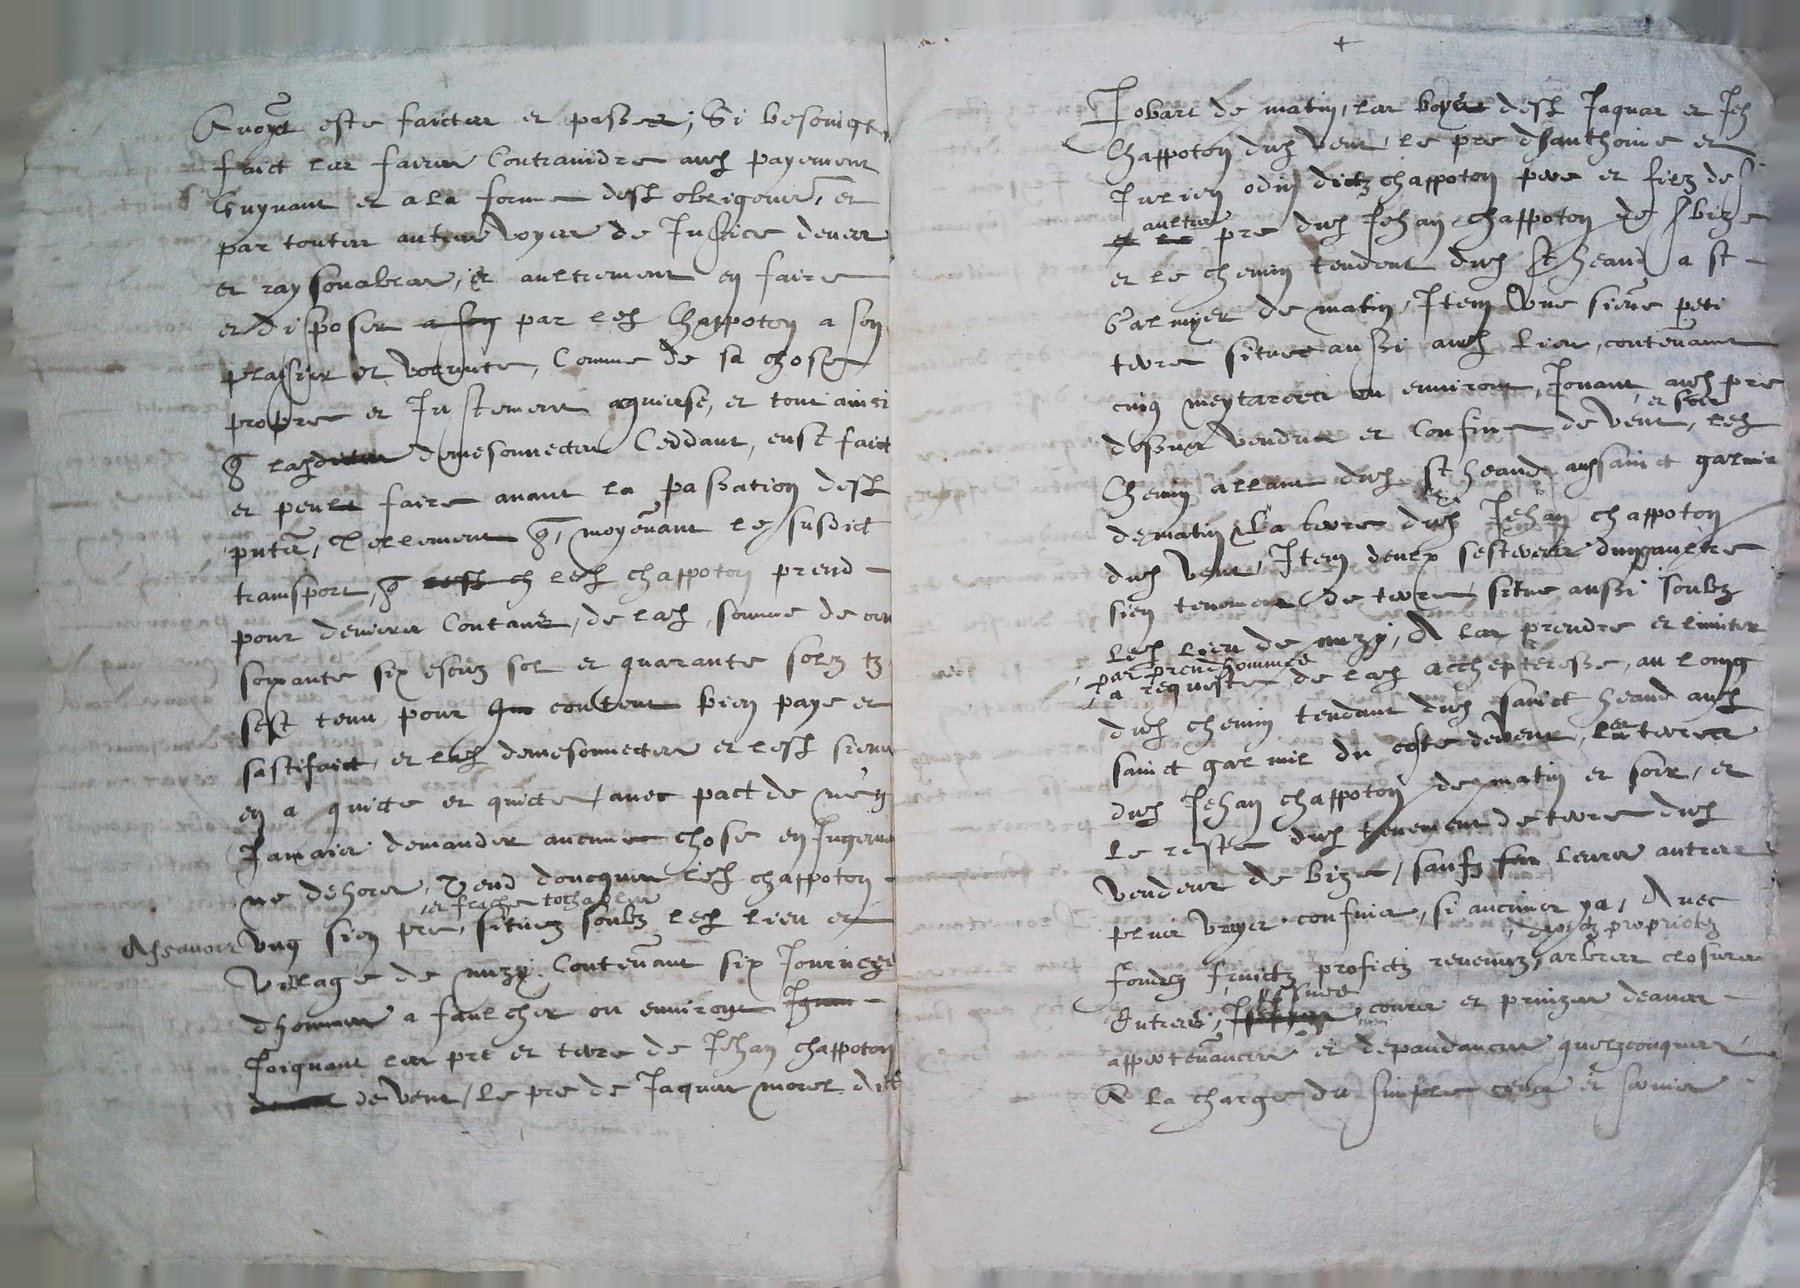 avoyt este faictes et passees, Si besoing
faict les faire contraindre aud payement
suyvant et a la forme desd obligeances, et
par toutes autres voyes de Justice deues
et raysonables, et aultrement en faire
et disposer a son par led Chappoton a son
plaisir et volunte, Comme de sa chose
propre et Justement aquise, et tout ainsi
q lad demesonnectes Ceddant, eust faict
et peult faire avant la passation desd
pntes, tellement q, moyenant le susdict
transport, q led chappoton prend
pour deniers contans, de lad somme de cen
soixante six escuz sol et quarante solz tz
sest tenu pour content bien paye et
sastifaict, et lad demesonnectes et lesd siens
en a quicte et quicte, avec pact de ne
Jamais demander aucune chose en Jugement
ne dehors, vend doncques led chappoton
et
Assavoir ung sien pre, situez soubz led lieu et
village de muzy Contenant six Journees
dhommes a faulcher ou environt
Joignant les pre et terre de Jehan chappoton
de vent, le pre de Jaques morel dict
Jobart de matin, les boys desd Jaques et Jeh
Chappoton dud vent, le pre dSanthoine et
Julien odin dictz chappoton pere et filz de
aultre
pre dud Jehan chappoton de bize
et le chemin tendent dud St heand a st
Galmyer de matin, Item Une sienne peti
terre situee aussi aud lieu, contenant
cinq meytarees ou environt, Jouant aud pre
et soir
dessus vendu et Confine de vent, led
Chemin allant dud St heand aud sainct galmir
de matin La terre dud Jehan chappoton
dud vent, Item deulx sesterees dung aultre
sien tenement de terre situe aussi soubz
led lieu de muzy, A les prendre et limiter
par preudhommes
a requeste de lad accheptaresse, au long
dud chemin tendant dud sainct heand aud
sainct galmil du coste devent, les terres
dud Jehan chappoton de matin et soir, et
le reste dud tenement de terre dud
vendeur de bize, saufz leurs autres
plus vrays confins, si aucuns ya, Avec
droictz proprietez
fondz fruictz profictz revenuz, arbres closures
Entrees, yssues, cours et prinzes deaues
appertenances et depandances quelzconques
A la charge du simple cens et servis